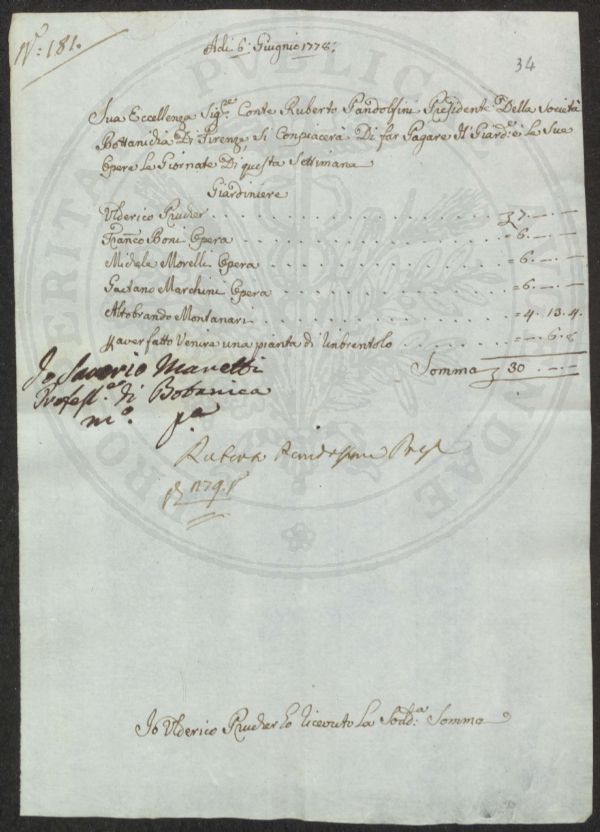 N.º: 181.
Adi 6: Giugnio 1778:
34
Sua Eccellenza Sig.re Conte Ruberto Pandolfini Presidente Della Società
Bottanicha Di Firenze, Si Conpiacerà Di far Pagare Il Giard:e e Le Sue
Opere Le Giornate Di questa Settimana
Giardiniere
Ulderico Prucher . . . 7. — . —
Franc:o Boni Opera . . . = 6. — . —
Michele Morelli Opera . . . = 6. — . —
Gaetano Marchini Opera . . . = 6. — . —
Altobrando Montanari . . . = 4. 13. 4.
p aver fatto Venire una pianta di Unbrentolo . . . = — . 6. 8
Somma 30 — . —
Io Saverio Manetti
Profess.re di Botanica
m.o p.a
Ruberto Pandolfini Pres.
1279.
PUBLICAE
PROSPERITATI
Io Ulderico Prucher ho ricevuto La Sod:a Somma